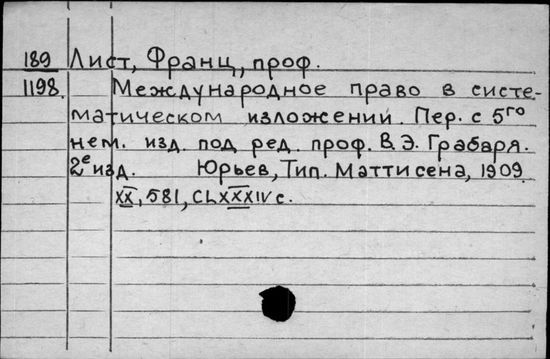 189 Лист, Франц, проф.
1198. Международное право в систе-
матическом изложении. Пер. с 5го
нем. изд. под ред. проф. В.Э. Грабаря.
2е изд. Юрьев, Тип. Маттисена, 1909.
XX, 581, CLXXXIV с.